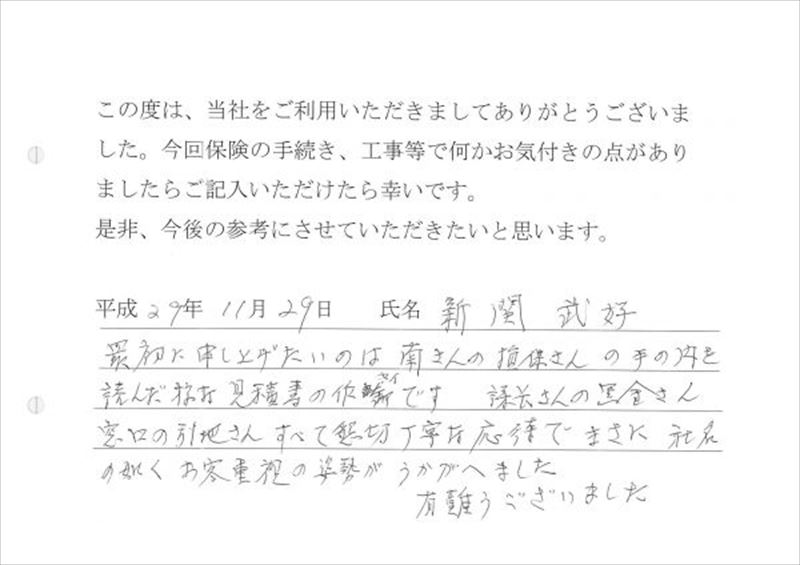 この度は、当社をご利用いただきましてありがとうございま
した。今回保険の手続き、工事等で何かお気付きの点があり
ましたらご記入いただけたら幸いです。
是非、今後の参考にさせていただきたいと思います。
平成29年11月29日 氏名 新関 武好
最初に申し上げたいのは 南さんの 損保さん の手の内を
読んだ様な 見積書の作セイです 課長さんの黒金さん
窓口の引地さん すべて懇切丁寧な応待で まさに 社名
の如く お客重視の姿勢が うかがへました
有難うございました